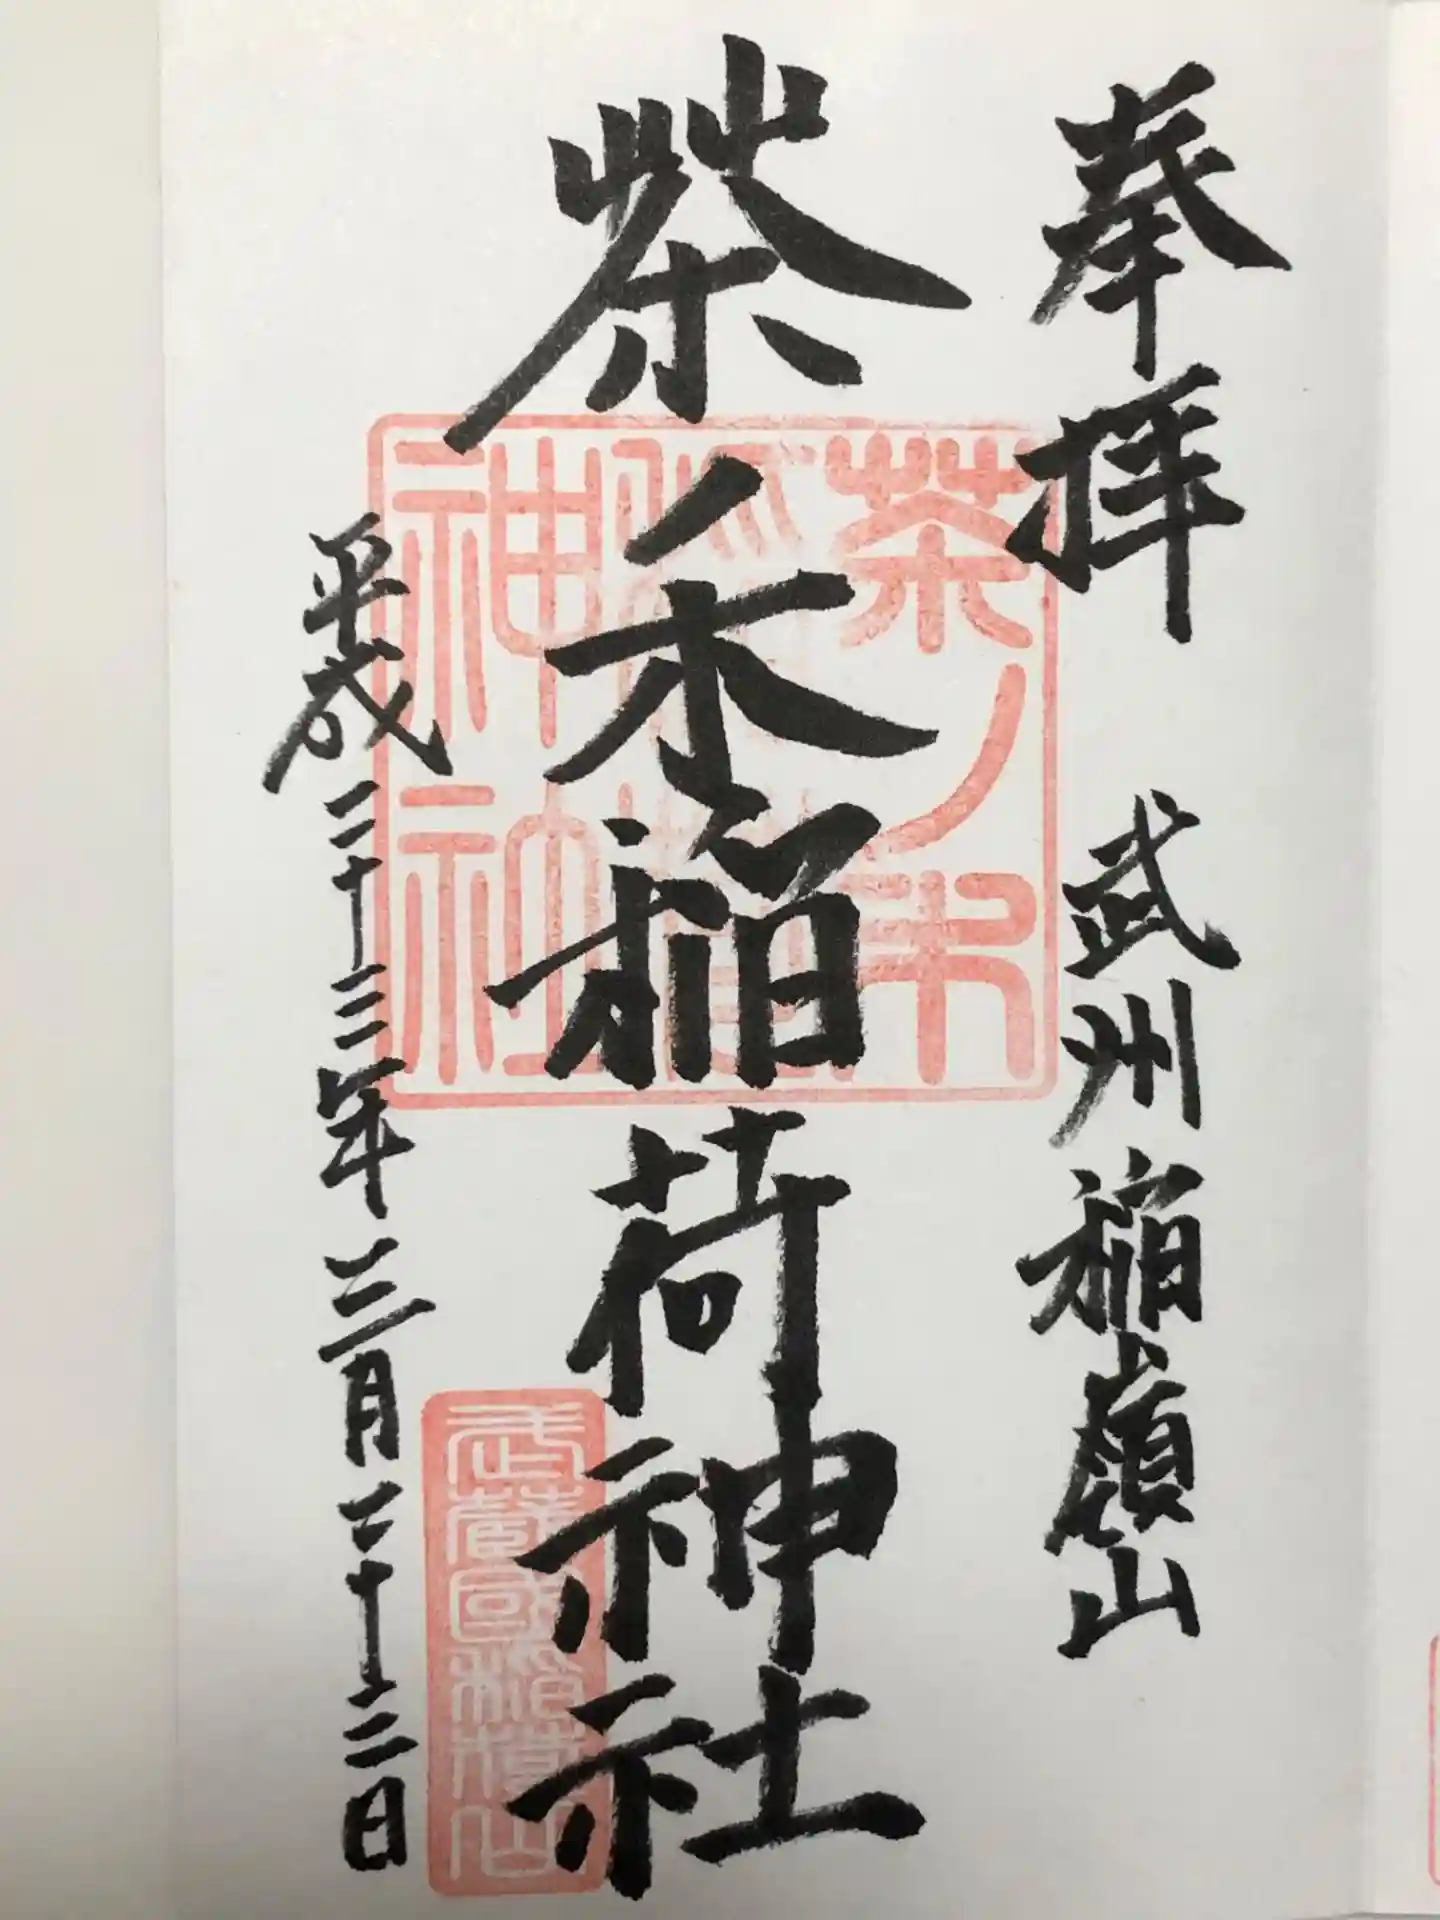 奉拝　武州稲嶺山
茶ノ木稲荷神社
平成二十三年三月二十二日
茶ノ木
稲荷
神社
武蔵國稲山